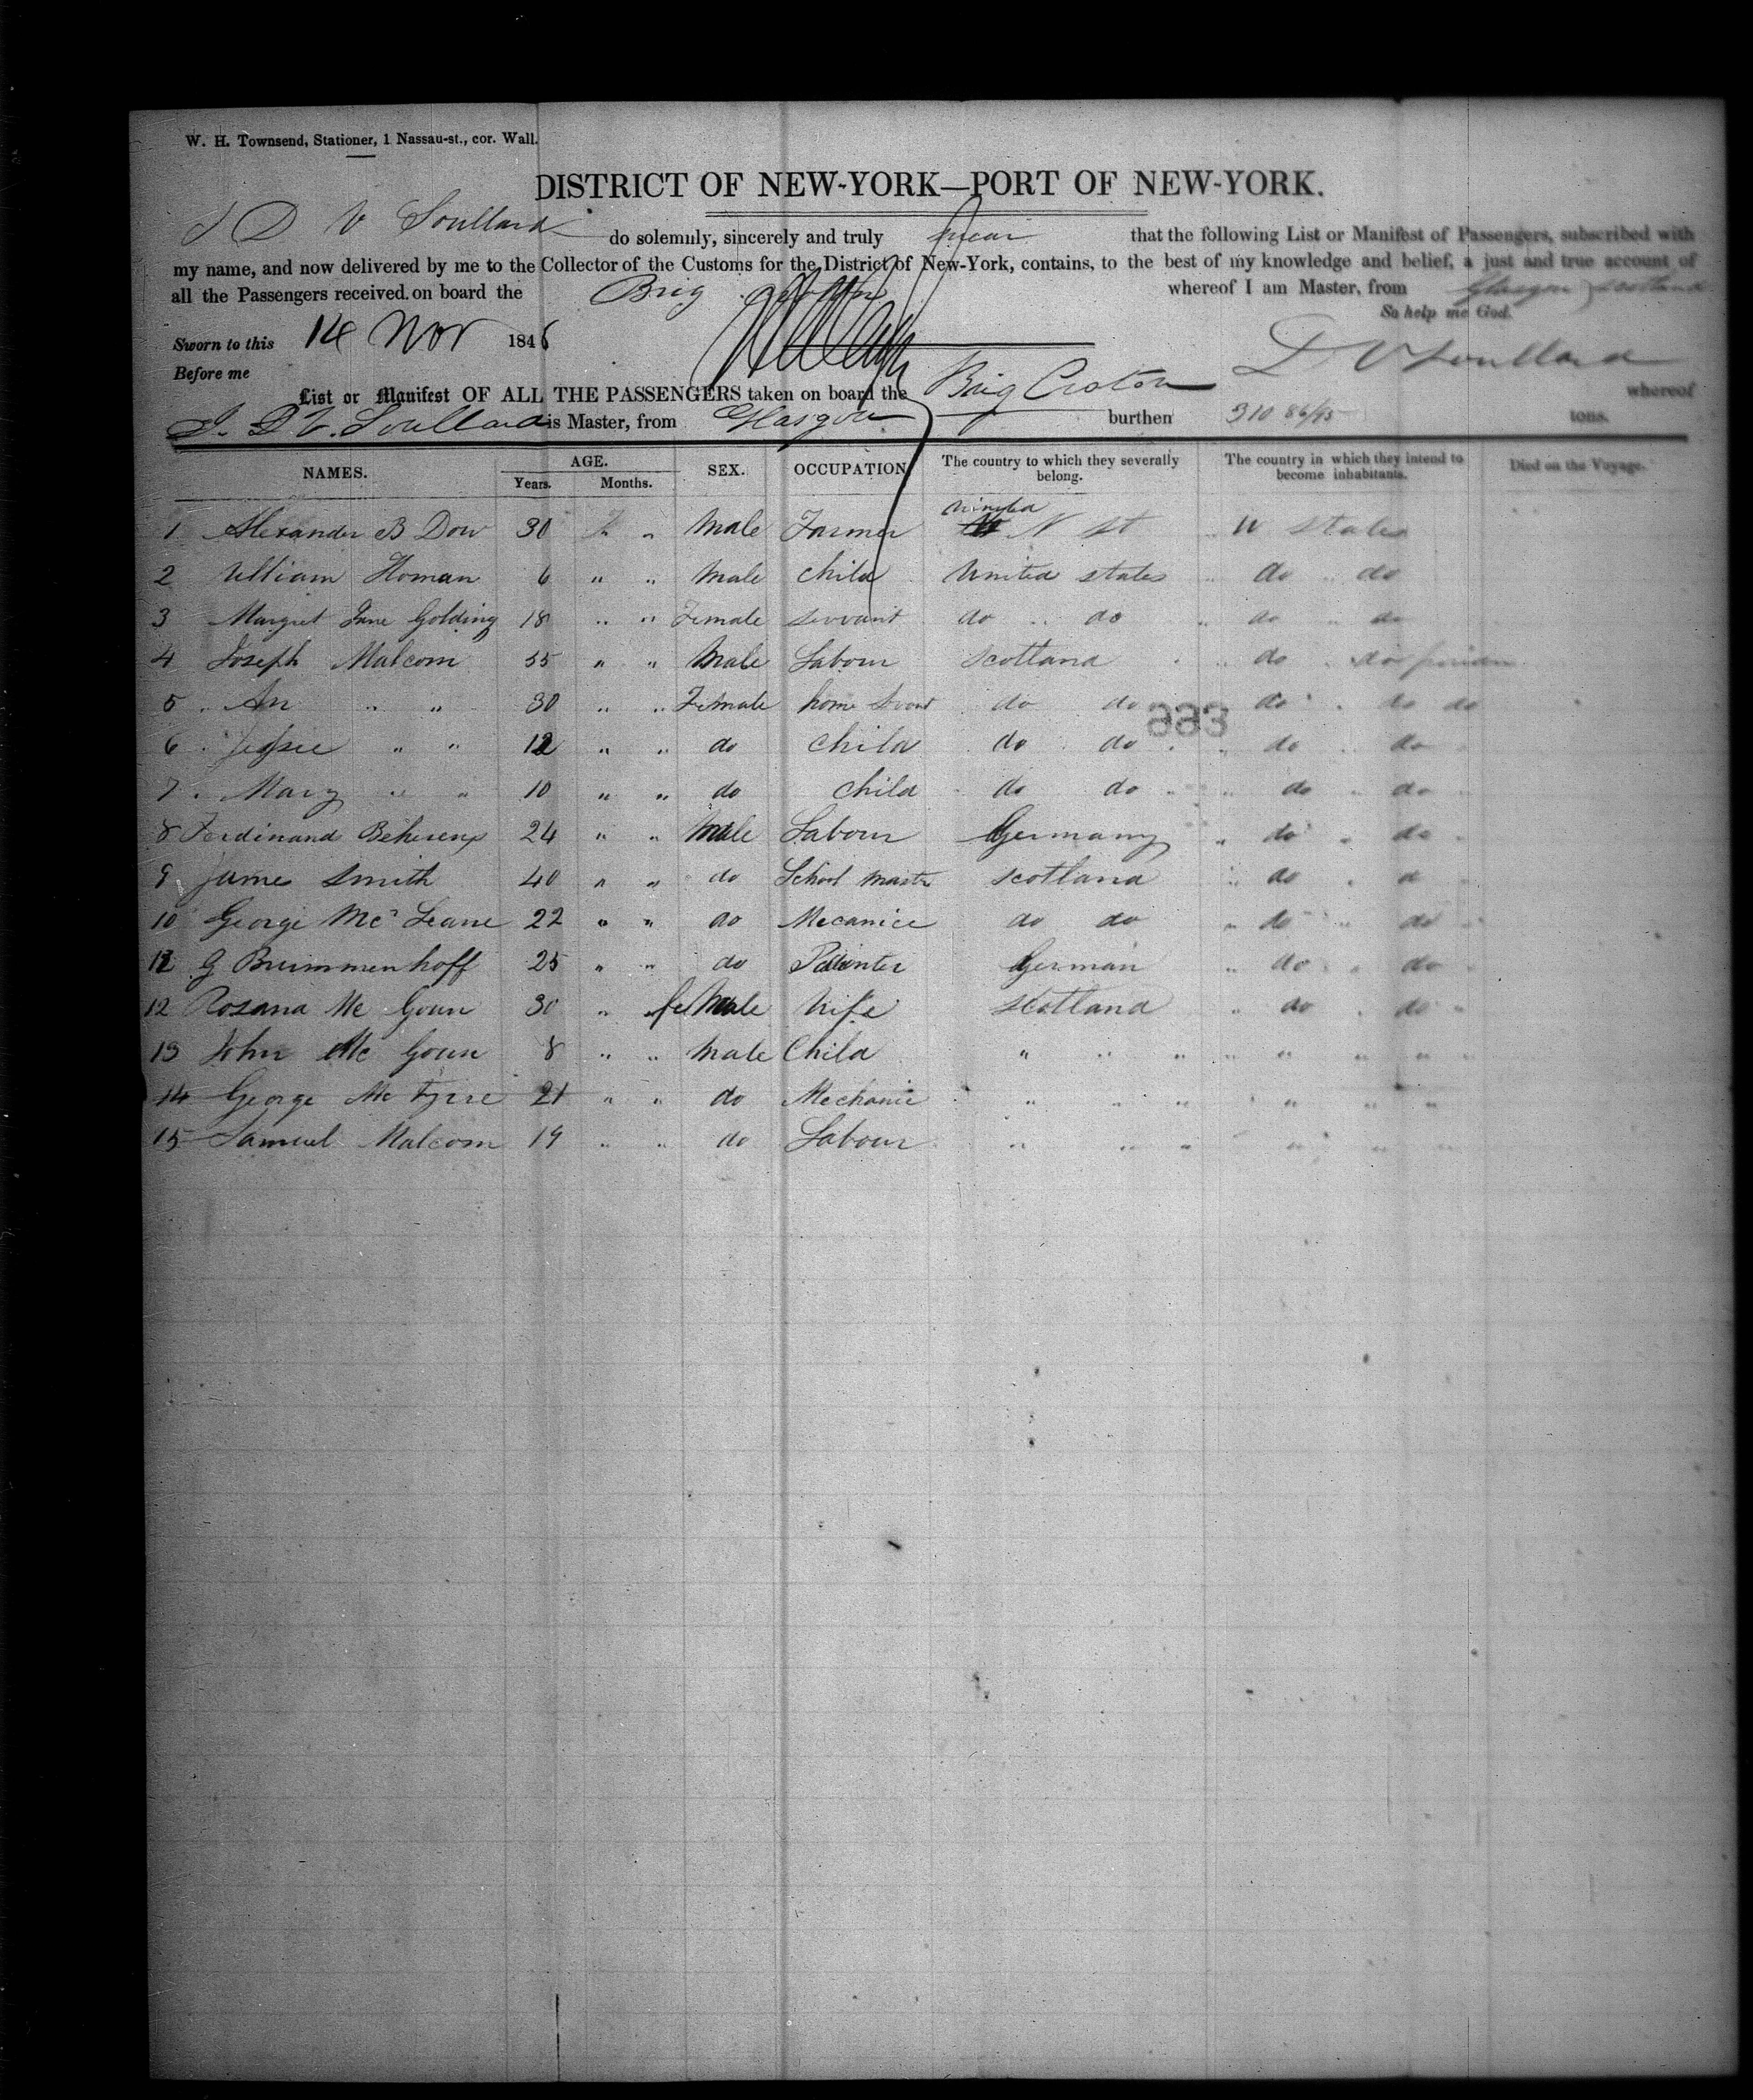 W. H. Townsend, Stationer, 1 Nassau-st., cor. Wall.
DISTRICT OF NEW-YORK—PORT OF NEW-YORK.
I D V Soullard do solemnly, sincerely and truly swear that the following List or Manifest of Passengers, subscribed with
my name, and now delivered by me to the Collector of the Customs for the District of New-York, contains, to the best of my knowledge and belief, a just and true account of
all the Passengers received on board the Brig Croton whereof I am Master, from Glasgow Scotland
So help me God.
Sworn to this 14 Nov 1846
D V Soullard
Before me
List or Manifest OF ALL THE PASSENGERS taken on board the Brig Croton whereof
D. V. Soullard is Master, from Glasgow burthen 310 86/95 tons.
NAMES. AGE. Years. Months. SEX. OCCUPATION The country to which they severally belong. The country in which they intend to become inhabitants. Died on the Voyage.
United
1 Alexander B Dow 30 " Male Farmer N St U States
2 William Homan 6 " " Male Child United states do do
3 Margret Jane Golding 18 " " Female servant do do do do
4 Joseph Malcom 35 " " Male Labour Scotland do do
5 An " " 30 " " Female home do do do do do
6 Jessie " " 12 " " do Child do do do do
7 Mary " " 10 " " do Child do do do do
8 Ferdinand Behrens 24 " " Male Labour Germany do do
9 James Smith 40 " " do School Mastr scotland do d
10 George Mc Leane 22 " " do Mecanice do do do do
11 G Brummenhoff 25 " " do Painter German do do
12 Rosana Mc Goun 30 " " feMale Wife scotland do do
13 John Mc Goun 8 " " Male Child " " " " " " "
14 George Mc 21 " " do Mechanic " " " " " "
15 Samuel Malcom 19 " " do Labour " " " " " "
993